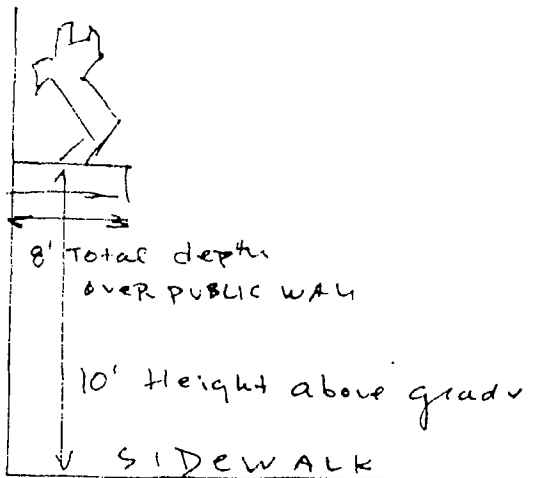 8' Total depth
OVER PUBLIC WAY
10' Height above grade
SIDEWALK